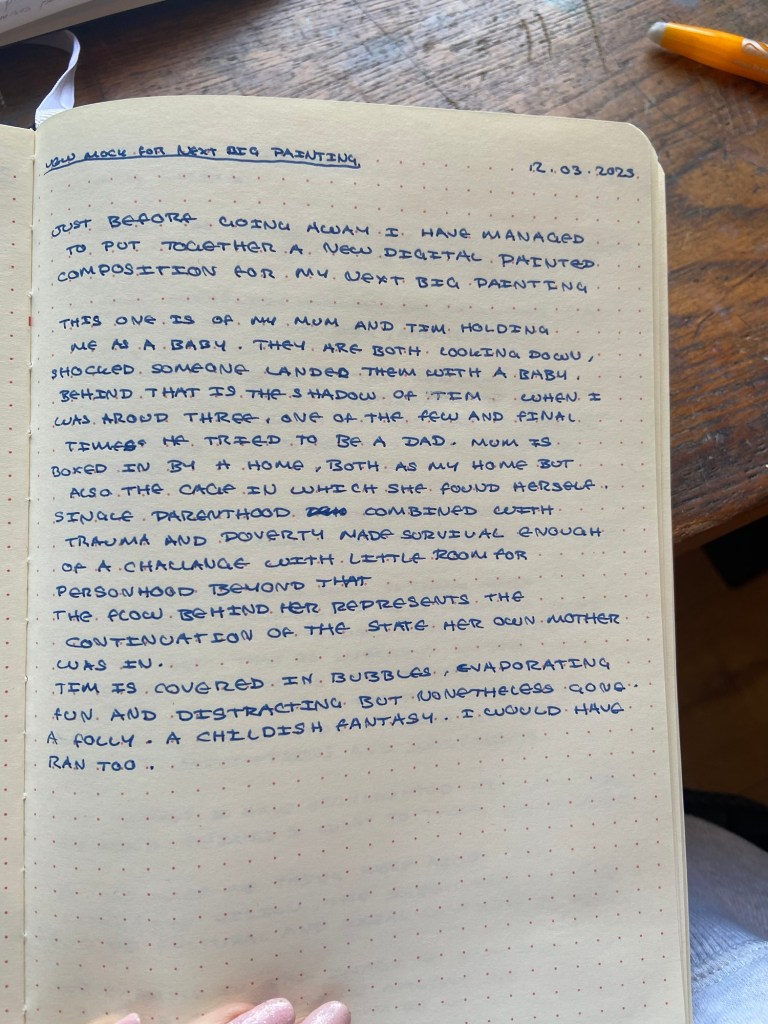 NEW MOCK FOR NEXT BIG PAINTING
12.03.2025
JUST BEFORE GOING AWAY I HAVE MANAGED
TO PUT TOGETHER A NEW DIGITAL PAINTED
COMPOSITION FOR MY NEXT BIG PAINTING
THIS ONE IS OF MY MUM AND TIM HOLDING
ME AS A BABY. THEY ARE BOTH LOOKING DOWN,
SHOCKED SOMEONE LANDED THEM WITH A BABY.
BEHIND THAT IS THE SHADOW OF TIM WHEN I
WAS AROUD THREE, ONE OF THE FEW AND FINAL
TIMES HE TRIED TO BE A DAD. MUM IS
BOXED IN BY A HOME, BOTH AS MY HOME BUT
ALSO THE CAGE IN WHICH SHE FOUND HERSELF.
SINGLE PARENTHOOD COMBINED WITH
TRAUMA AND POVERTY MADE SURVIVAL ENOUGH
OF A CHALLANGE WITH LITTLE ROOM FOR
PERSONHOOD BEYOND THAT
THE FLOW BEHIND HER REPRESENTS THE
CONTINUATION OF THE STATE HER OWN MOTHER
WAS IN.
TIM IS COVERED IN BUBBLES, EVAPORATING
FUN AND DISTRACTING BUT NONETHELESS GONE.
A FOLLY. A CHILDISH FANTASY. I WOULD HAVE
RAN TOO.